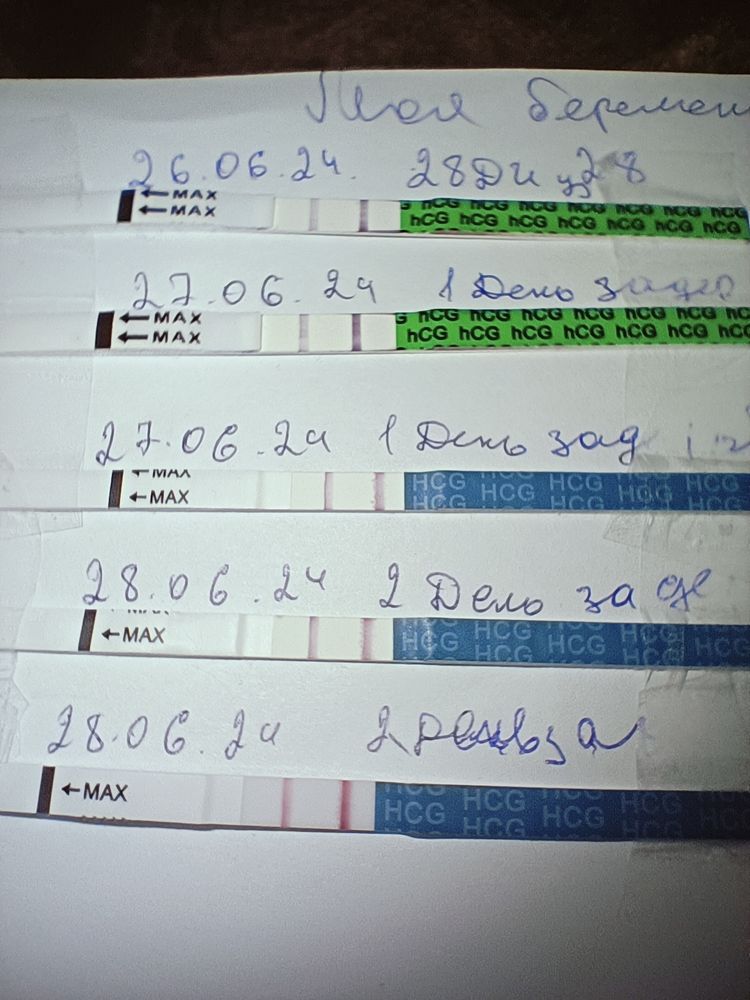 Моя беремен
26.06.24. 28 ДЦ из 28
MAX
MAX hCG hCG hCG hCG hCG hCG hCG
hCG hCG hCG hCG hCG hCG hCG
27.06.24 1 День задер
MAX hCG hCG hCG hCG hCG hCG
MAX hCG hCG hCG hCG hCG hCG hCG
27.06.24 1 День зад
MAX HCG HCG HCG HCG HCG
MAX HCG HCG HCG HCG HCG
28.06.24 2 День заде
MAX HCG HCG HCG HCG
HCG HCG HCG HCG
28.06.24 2 День за
MAX HCG HCG HCG HCG
HCG HCG HCG HCG